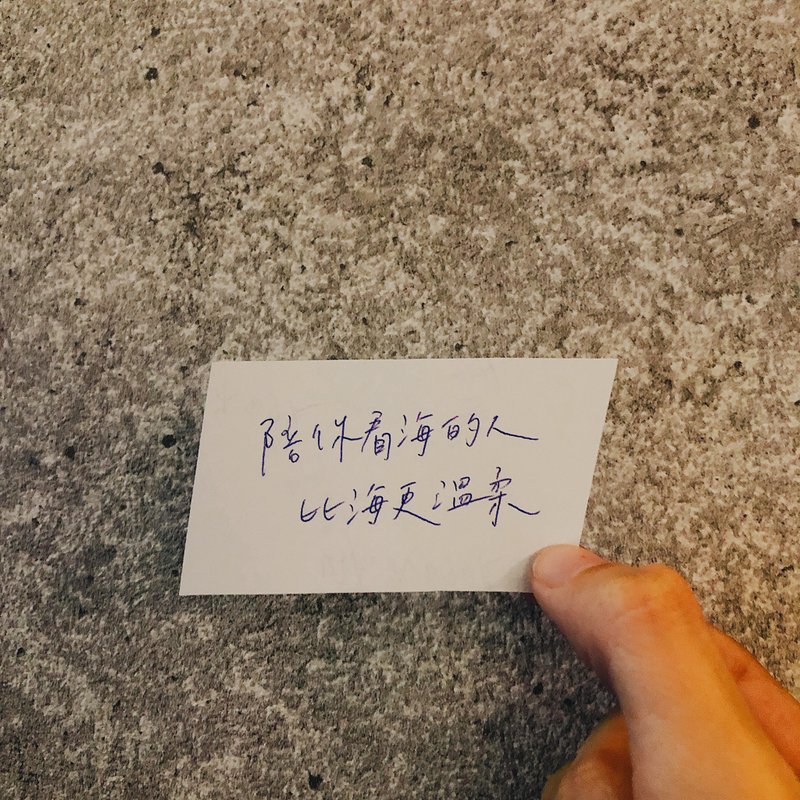 陪你看海的人
比海更溫柔